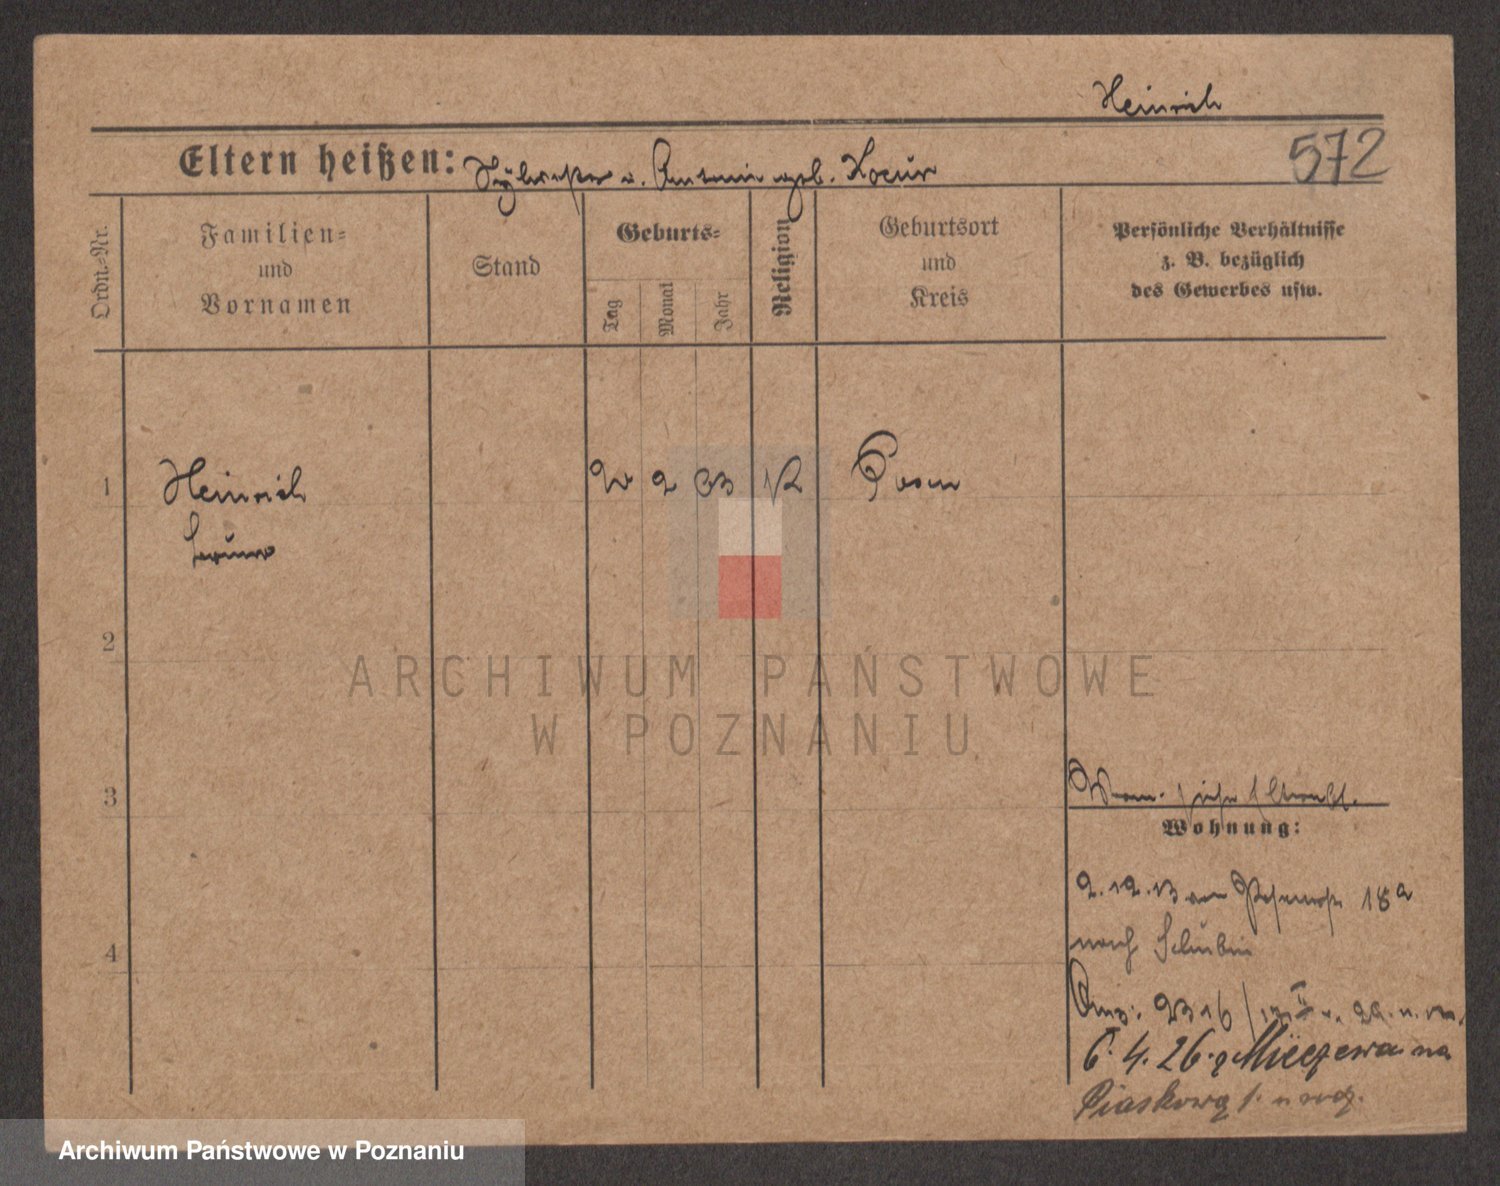 Heinrich
572
Eltern heißen: Sylvester u. Antonie geb. Kocur
Ordn.=Nr.
Familien=
und
Vornamen
Stand
Geburts=
Tag
Monat
Jahr
Religion
Geburtsort
und
Kreis
Persönliche Verhältnisse
z. B. bezüglich
des Gewerbes usw.
1 Heinrich 2 Posen
2
3
4
siehe
Wohnung:
2.12.13 von 18a
nach Schubin
6.4.26. z Mieczewa na
Piaskową 1.
ARCHIWUM PAŃSTWOWE
W POZNANIU
Archiwum Państwowe w Poznaniu